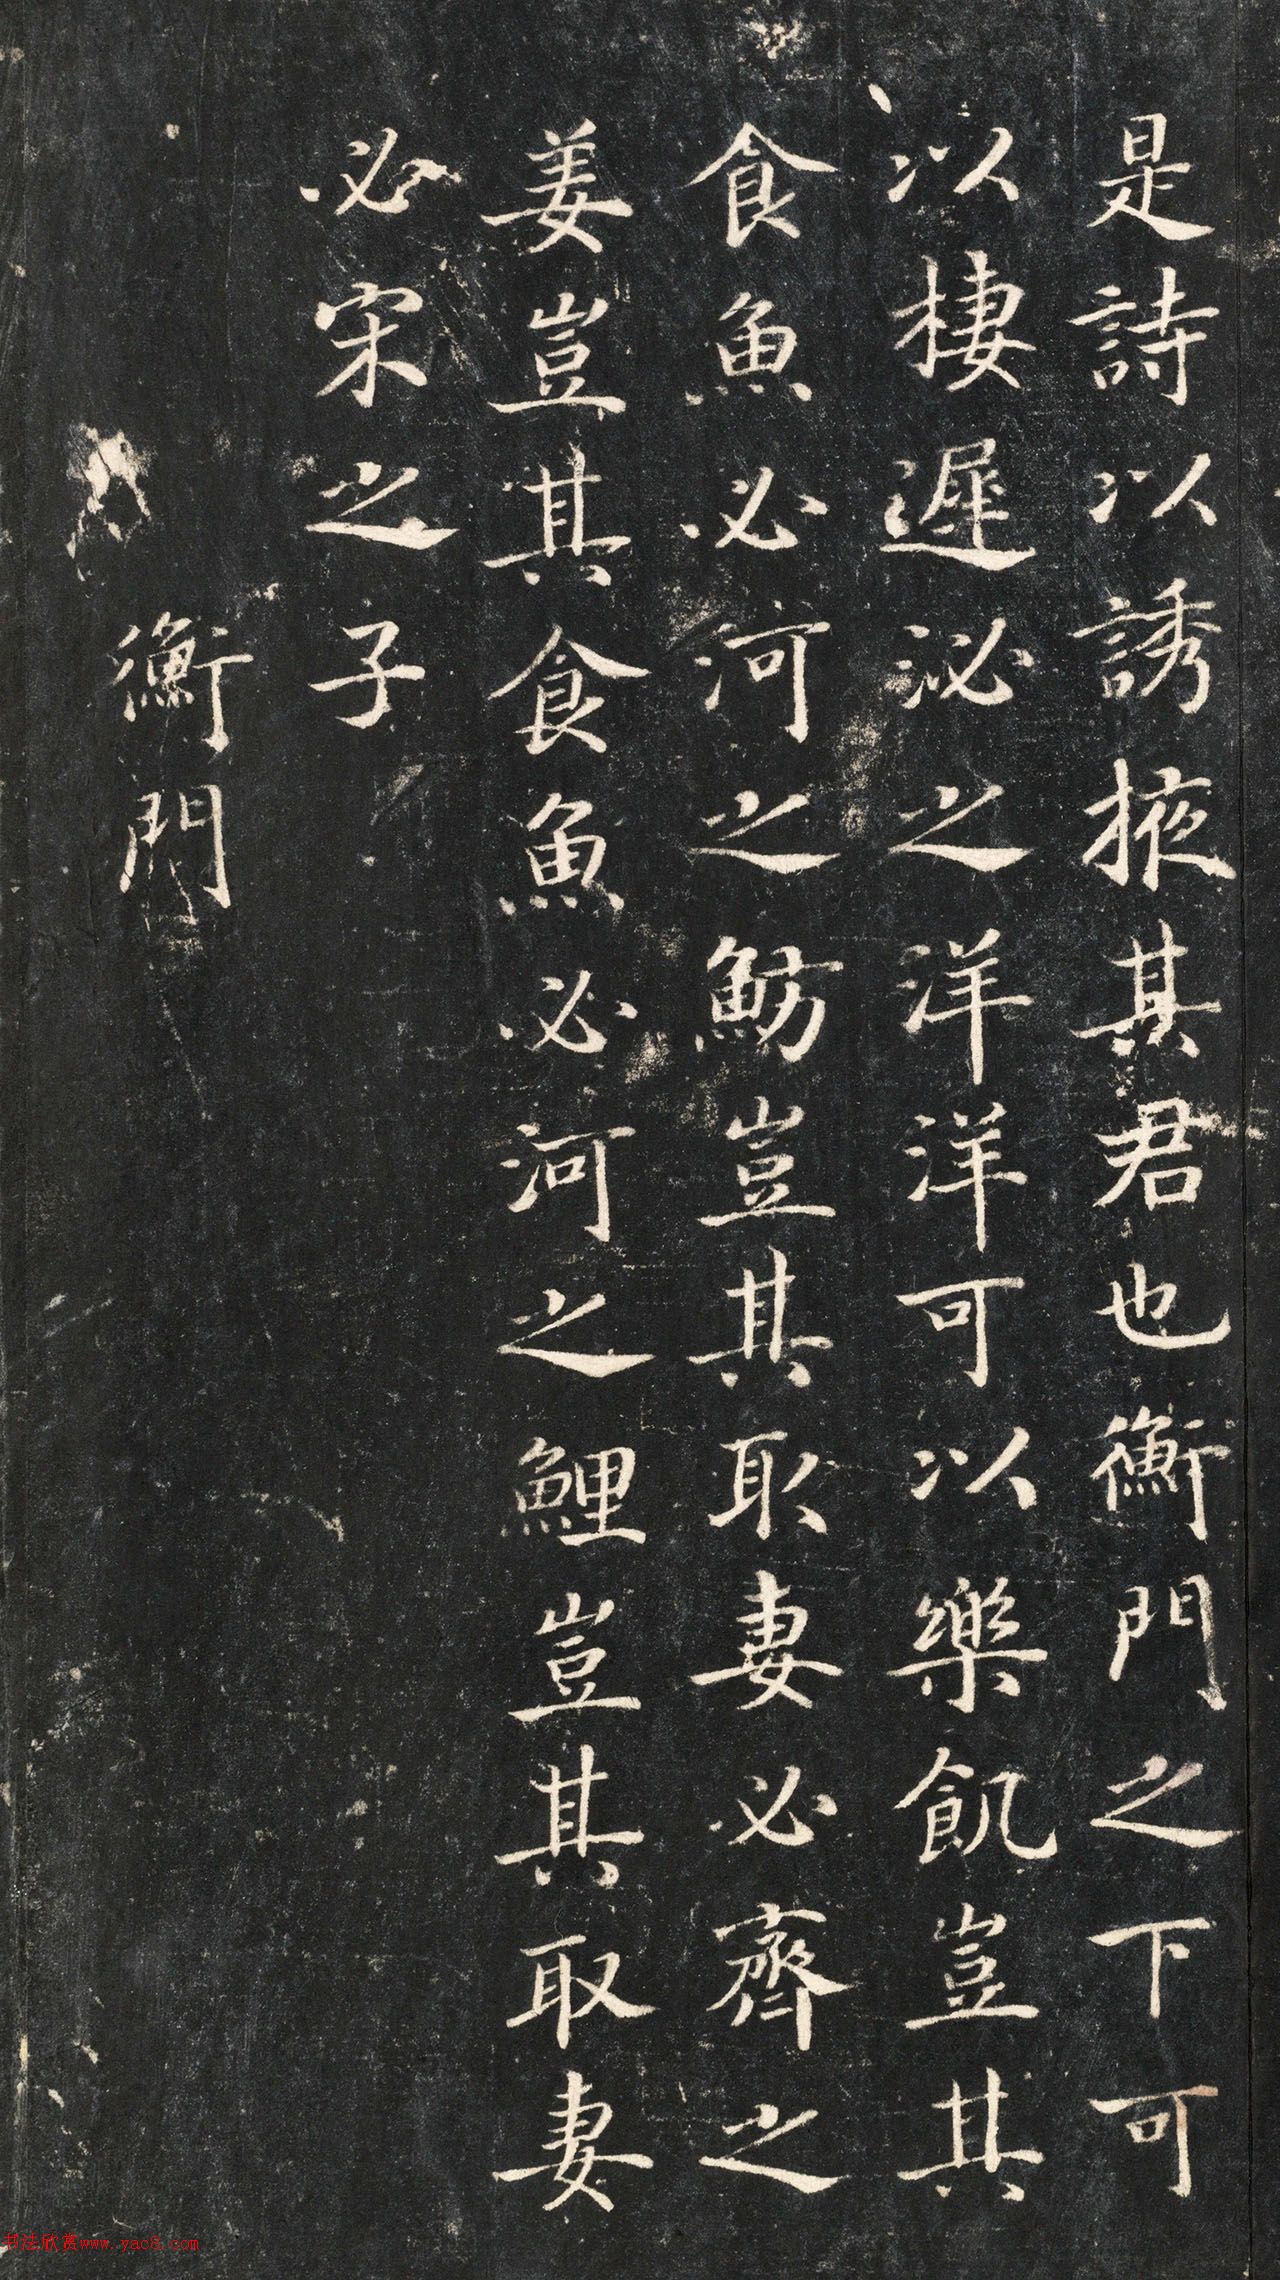 是詩以誘掖其君也衡門之下可
以棲遲泌之洋洋可以樂飢豈其
食魚必河之魴豈其取妻必齊之
姜豈其食魚必河之鯉豈其取妻
必宋之子
衡門
书法欣赏www.yac8.com